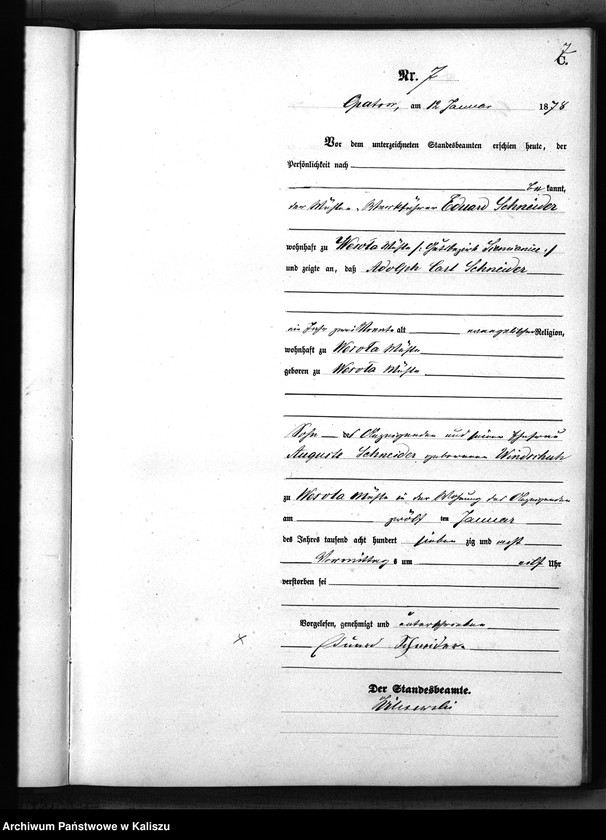 7
C.
Nr. 7
Opatow, am 12 Januar 1878
Vor dem unterzeichneten Standesbeamten erschien heute, der
Persönlichkeit nach
be kannt,
der Mühlen-Werkführer Eduard Schneider
wohnhaft zu Werota Mühle /: Gutsbezirk Siemianice :/
und zeigte an, daß Adolph Carl Schneider
ein Jahr zwei Monate alt evangelischer Religion,
wohnhaft zu Werota Mühle
geboren zu Werota Mühle
Sohn des Anzeigenden und seiner Ehefrau
Auguste Schneider geborenen
zu Werota Mühle in der Wohnung des Anzeigenden
am zwölf ten Januar
des Jahres tausend acht hundert sieben zig und acht
Vormittag s um elf Uhr
verstorben sei
Vorgelesen, genehmigt und unterschrieben
Eduard Schneider
Der Standesbeamte.
Archiwum Państwowe w Kaliszu